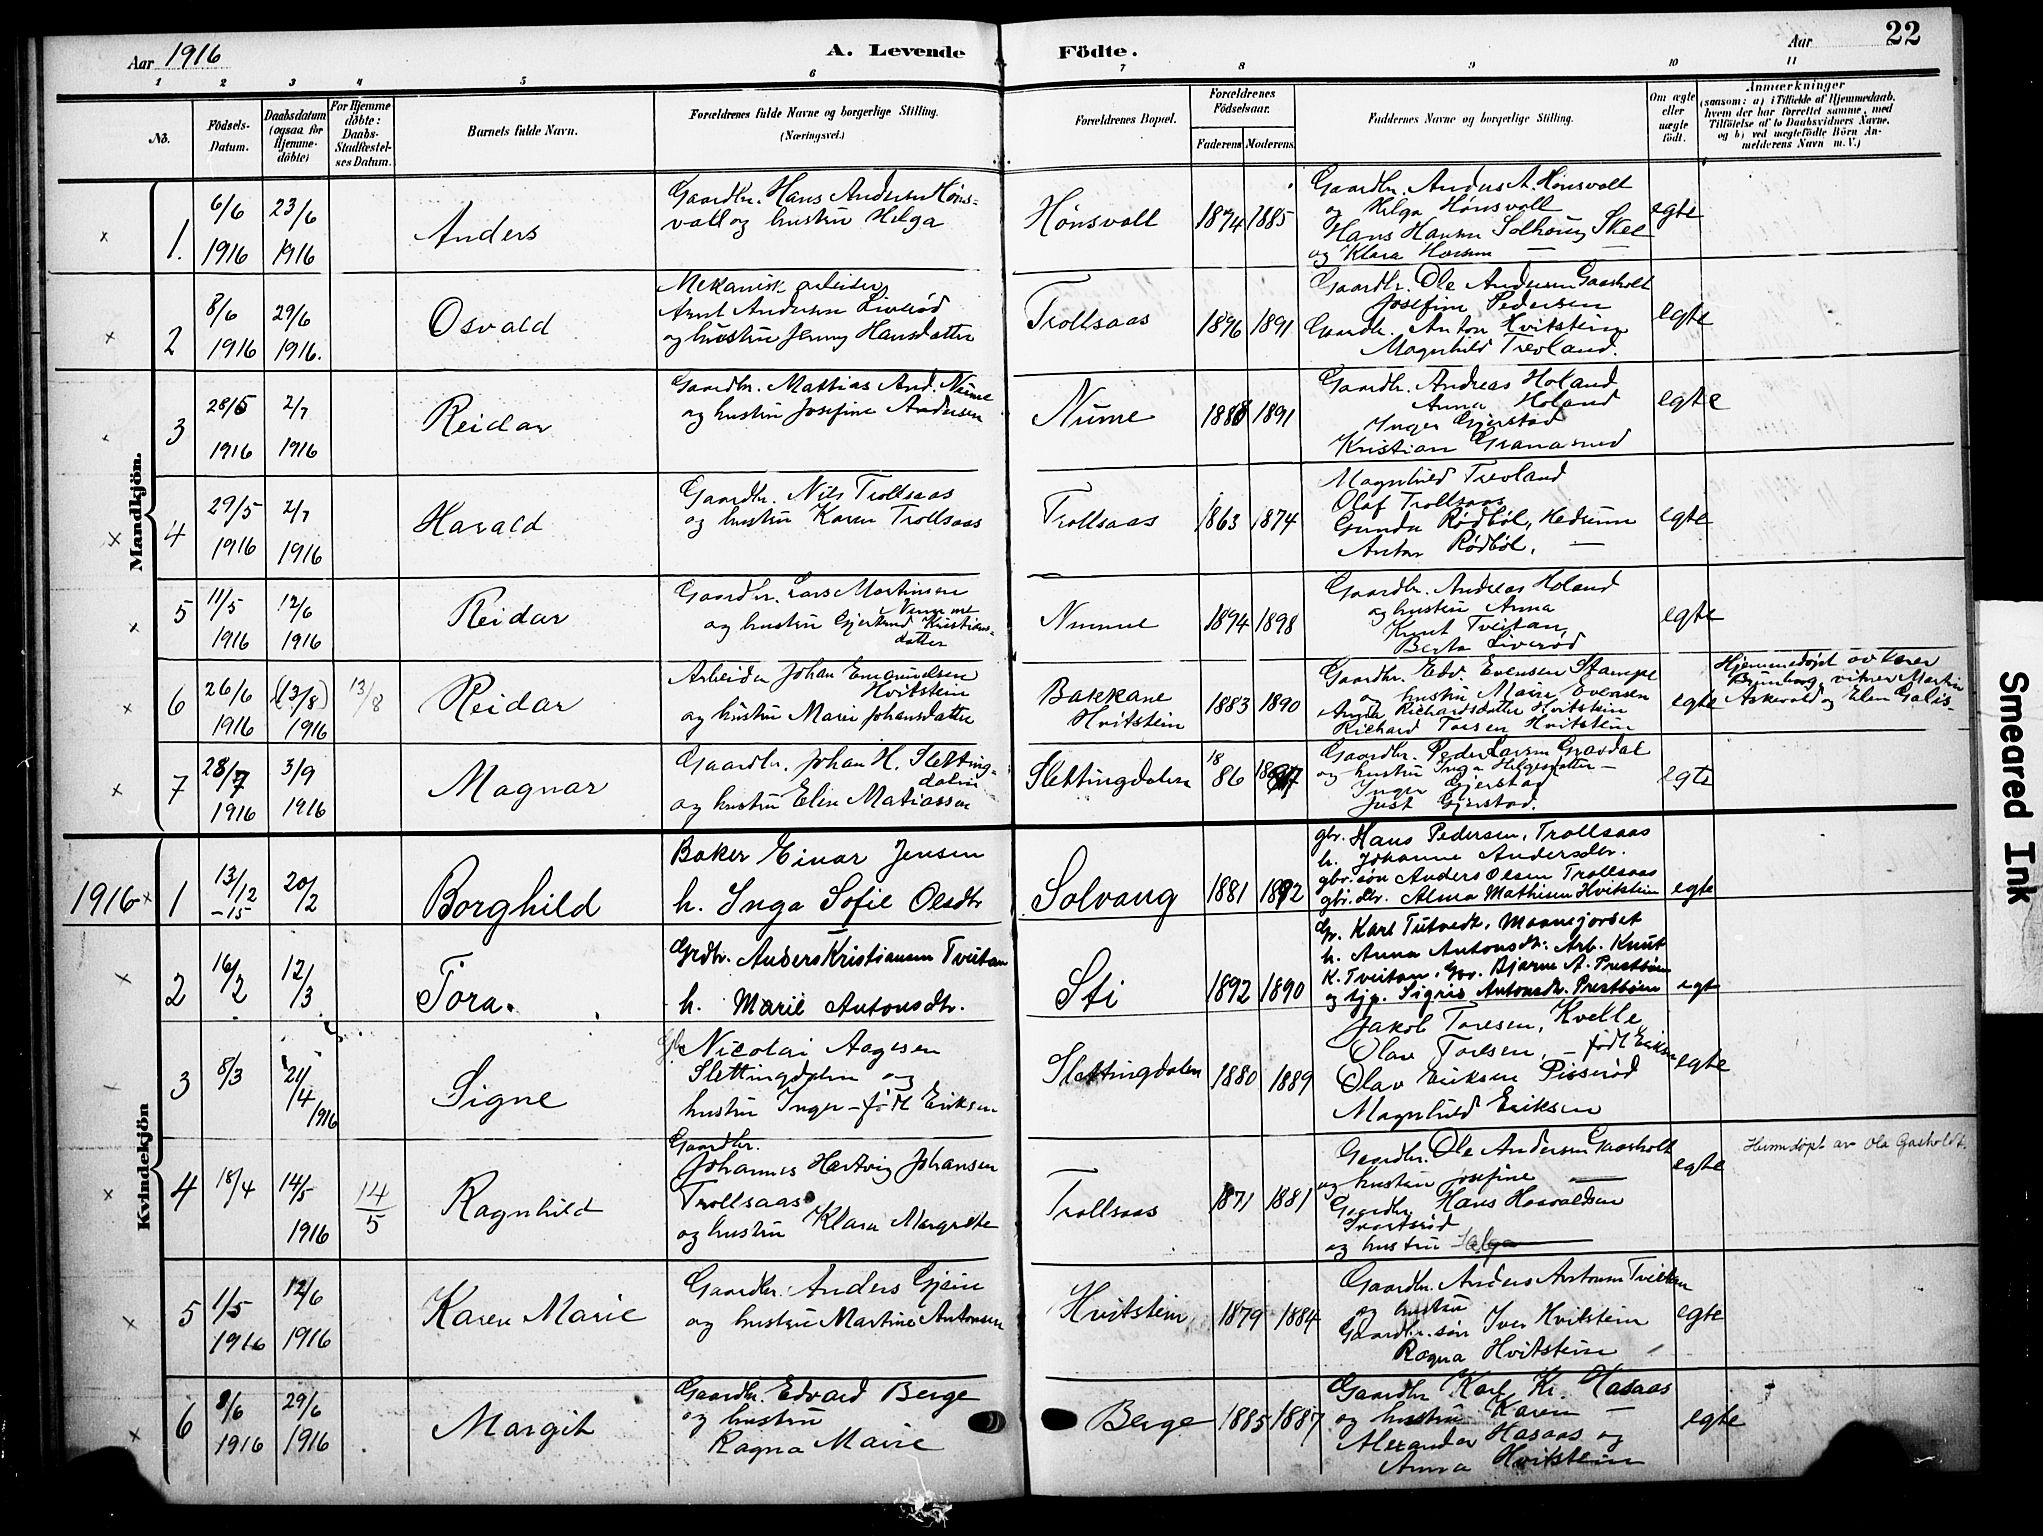 Aar 1916
A. Levende Födte.
Aar
22
1 2 3 4 5 6 7 8 9 10 11
No.
Födsels-
Datum.
Daabsdatum
(ogsaa for
Hjemme-
döbte)
For Hjemme
döbte:
Daabs-
Stadfæstel-
ses Datum.
Barnets fulde Navn.
Forældrenes fulde Navne og borgerlige Stilling.
(Næringsvei.)
Forældrenes Bopæl.
Forældrenes
Födselsaar.
Faderens Moderens
Faddernes Navne og borgerlige Stilling.
Om ægte
eller
uægte
født.
Anmærkninger
(saasom: a) i Tilfælde af Hjemmedaab,
hvem der har forrettet samme, med
Tilföielse af to Daabsvidners Navne,
og b) ved uægtefödte Börn An-
melderens Navn m. V.)
Mandkjön.
1.
6/6
1916
23/6
1916
Anders
Gaardbr. Hans Andersen Høns-
vall og hustru Helga
Hønsvall
1874 1885
Gaardbr. Anders A. Hønsvall
og Helga Hønsvall
Hans Hansen Solhoug Skee
og Klara Hansen —
egte
2
8/6
1916
29/6
1916.
Osvald
Mekanisk arbeider
Arnt Andersen Liverød
og hustru Jenny Hansdatter
Trollsaas
1896 1891
Gaardbr. Ole Andersen Gaasholt
Josefine Pedersen
Gaardbr. Anton Hvitstein
Magnhild Trevland.
egte
3
28/5
1916
2/7
1916
Reidar
Gaardbr. Mattias And. Nume
og hustru Josefine Andersen
Nume
1888 1891
Gaardbr. Andreas Holand
Anna Holand
Inger Gjerstad
Kristian
egte
4
29/5
1916
2/7
1916
Harald
Gaardbr. Nils Trollsaas
og hustru Karen Trollsaas
Trollsaas
1863 1874
Magnhild Trevland
Olaf Trollsaas
Gunda Rødbøl, Hedrum
Anton Rødbøl, —
egte
5
11/5
1916
12/6
1916
Reidar
Gaardbr. Lars Martinsen
Numme
og hustru Gjertrud Kristians-
datter
Numme
1894 1898
Gaardbr. Andreas Holand
og hustru Anna
Knut Tveitan,
Berta Liverød
egte
6
26/6
1916
(13/8)
1916
13/8
Reidar
Arbeider Johan Emanuelsen
Hvitstein
og hustru Marie Johansdatter
Bakkane
Hvitstein
1883 1890
Gaardbr. Edv. Evensen Stampe
og hustru Marie Evensen
Anna Richardsdatter Hvitstein
Richard Toresen Hvitstein
egte
Hjemmedøpt av
vitner Martin
Askevold og Elen
7
28/7
1916
3/9
1916
Magnar
Gaardbr. Johan H. Sletting-
dalen
og hustru Elen Matiassen
Slettingdalen
18
86
Gaardbr. Peder Larsen Gravdal
og hustru Inga Helgesdatter —
Inger Gjerstad
Just Gjerstad.
egte
Kvindekjön
1916
1
13/12
-15
20/2
Borghild
Baker Einar Jensen
h. Inga Sofie Olsdtr
Solvang
1881 1892
gbr. Hans Pedersen, Trollsaas
h. Johanne Andersdtr.
gbr.søn Anders Olsen Trollsaas
gbr. dtr. Alma Mathisen Hvitstein
egte
2
16/2
12/3
Tora.
Grdbr. Anders Kristiansen Tveitan
h. Marie Antonsdtr.
Sti
1892 1890
Gr. Karl Tutvedt,
h. Anna Antonsdtr. Arb. Knut
K. Tveitan, Gbr. Bjarne A. Prestbøen
og tjp. Sigrid Antonsdtr. Prestbøen
egte
3
8/3
24/4
1916
Signe
Gbr Nicolai Aagesen
Slettingdalen og
hustru Inger — født Eriksen
Slettingdalen
1880 1889
Jakob Toresen, Kvelle
Olava Toresen, — født Eriksen
Olav Eriksen Pisserød
Magnhild Eriksen
egte
4
18/4
14/5
1916
14/5
Ragnhild
Gaardbr.
Johannes Hartvig Johansen
Trollsaas
og hustru Klara Margrethe
Trollsaas
1871 1881
Gaardbr. Ole Andersen Gaasholt
og hustru Josefine —
Gaardbr Hans Haavaldsen
Svartsrød
og hustru Helga —
egte
Hjemdøpt av Ole Gasholdt.
5
1/5
1916
12/6
1916
Karen Marie
Gaardbr. Anders Gjein
og hustru Martine Antonsen
Hvitstein
1879 1884
Gaardbr. Anders Antonsen Tveitan
og hustru
Gaardbr.søn Iver Hvitstein
Ragna Hvitstein
egte
6
8/6
1916
29/6
1916
Margit
Gaardbr. Edvard Berge
og hustru
Ragna Marie
Berge
1885 1887
Gaardbr Karl Kr. Hasaas
og hustru Karen —
Alexander Hasaas og
Anna Hvitstein
egte
Smeared Ink